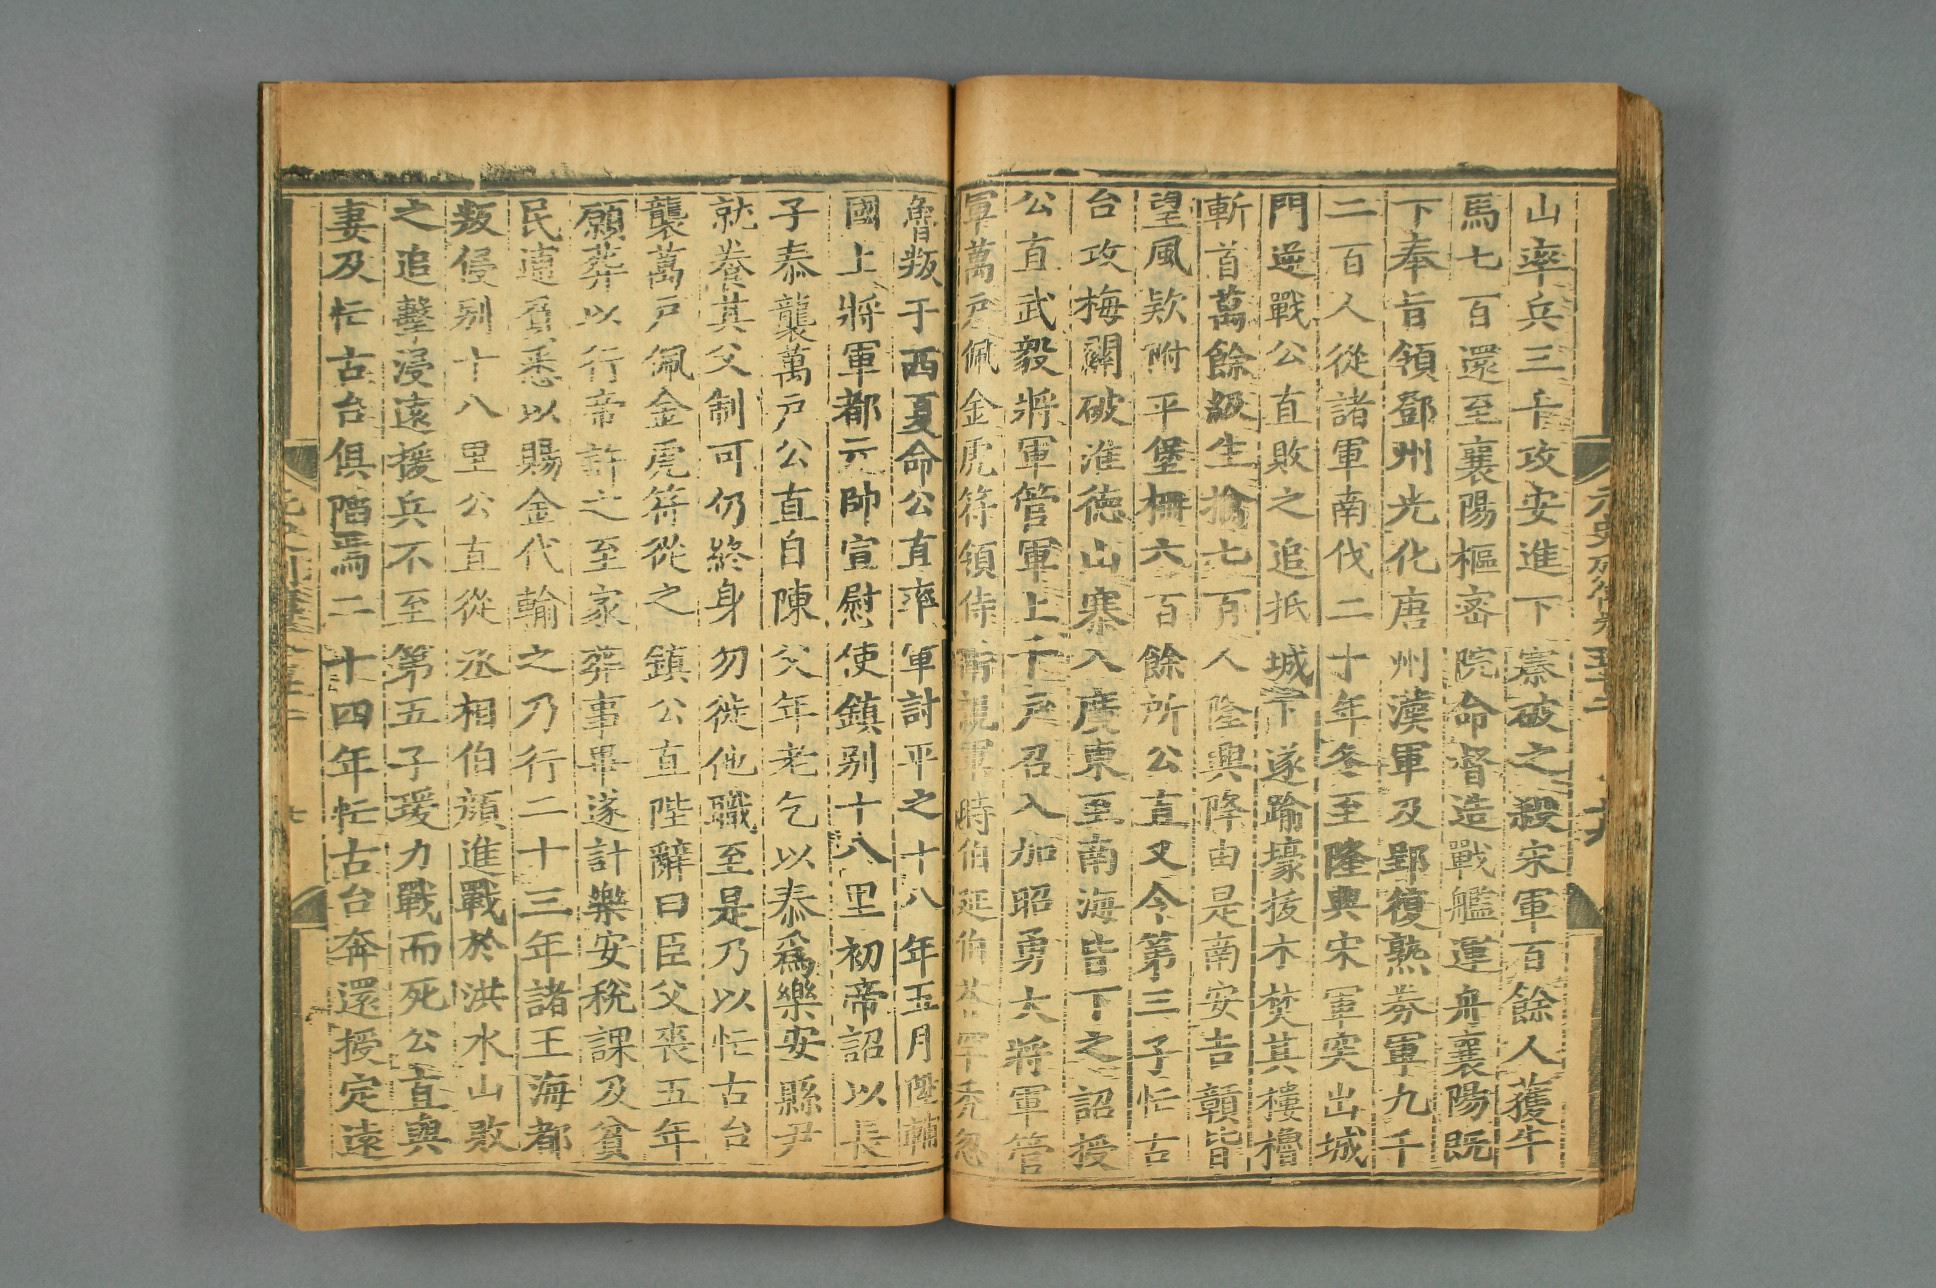 山率兵三千攻安進下寨破之殺宋軍百餘人獲牛
馬七百還至襄陽樞密院命督造戰艦運舟襄陽既
下奉旨領鄧州光化唐州漢軍及郢復熟券軍九千
二百人從諸軍南伐二十年冬至隆興宋軍突出城
門逆戰公直敗之追抵城下遂踰壕拔木焚其樓櫓
斬首萬餘級生擒七百人隆興降由是南安吉贛皆
望風欵附平堡柵六百餘所公直又令第三子忙古
台攻梅關破淮德山寨入廣東至南海皆下之詔授
公直武毅將軍管軍上千戶召入加昭勇大將軍管
軍萬戶佩金虎符領侍衛親軍時伯延伯荅罕禿忽
魯叛于西夏命公直率軍討平之十八年五月陞輔
國上將軍都元帥宣慰使鎮別十八里初帝詔以長
子泰襲萬戶公直自陳父年老乞以泰爲樂安縣尹
就養其父制可仍終身勿徙他職至是乃以忙古台
襲萬戶佩金虎符從之鎮公直陛辭曰臣父喪五年
願葬以行帝許之至家葬事畢遂計樂安稅課及貧
民逋負悉以賜金代輸之乃行二十三年諸王海都
叛侵別十八里公直從丞相伯顏進戰於洪水山敗
之追擊浸遠援兵不至第五子瑗力戰而死公直與
妻及忙古台俱陷焉二十四年忙古台奔還授定遠